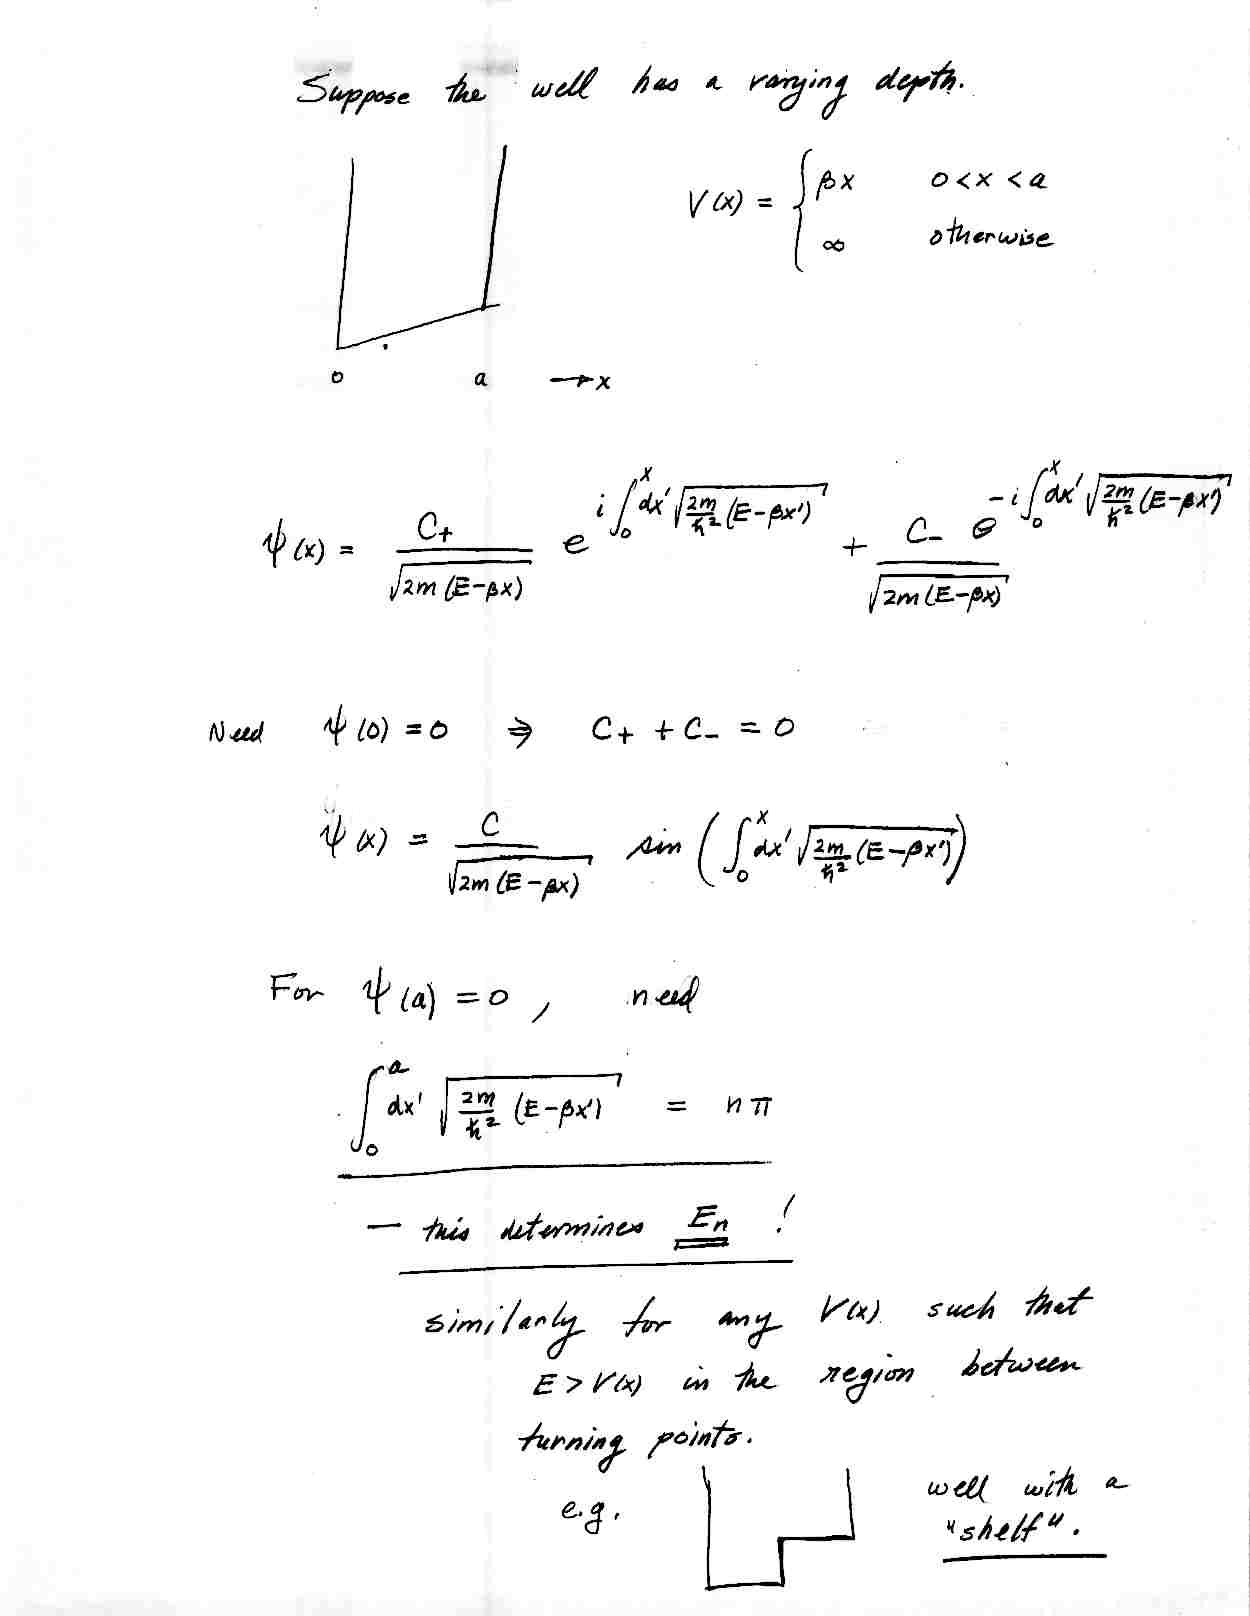 Suppose the well has a varying depth.
V(x) = { βx 0<x<a
∞ otherwise
0 a → x
ψ(x) = C₊ / √(2m(E-βx)) e^{i∫₀ˣ dx' √(2m/ħ² (E-βx'))} + C₋ / √(2m(E-βx)) e^{-i∫₀ˣ dx' √(2m/ħ² (E-βx'))}
Need ψ(0) = 0 ⇒ C₊ + C₋ = 0
ψ(x) = C / √(2m(E-βx)) sin (∫₀ˣ dx' √(2m/ħ² (E-βx')))
For ψ(a) = 0, need
∫₀ᵃ dx' √(2m/ħ² (E-βx')) = nπ
— this determines Eₙ !
similarly for any V(x) such that
E > V(x) in the region between
turning points.
e.g. well with a
"shelf".